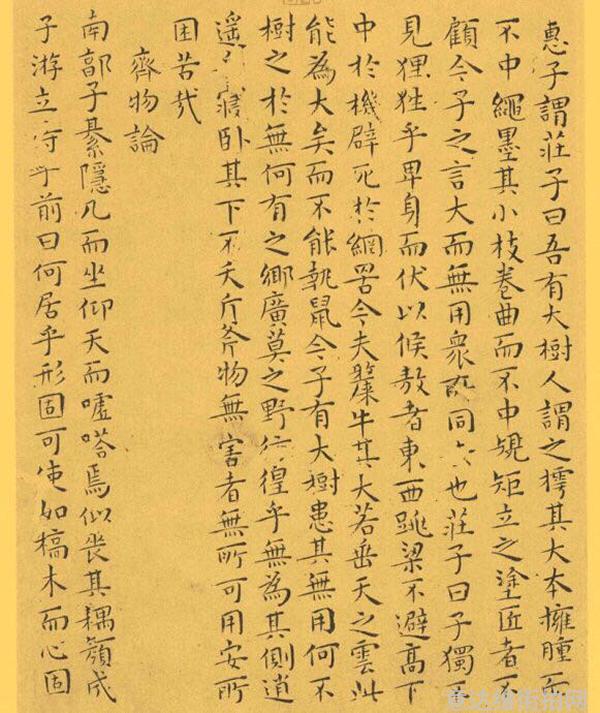 惠子謂莊子曰吾有大樹人謂之樗其大本擁腫而
不中繩墨其小枝卷曲而不中規矩立之塗匠者不
顧今子之言大而無用衆所同去也莊子曰子獨不
見狸狌乎卑身而伏以候敖者東西跳梁不避高下
中於機辟死於網罟今夫斄牛其大若垂天之雲此
能為大矣而不能執鼠今子有大樹患其無用何不
樹之於無何有之鄉廣莫之野彷徨乎無為其側逍
遥乎寢卧其下不夭斤斧物無害者無所可用安所
困苦哉
齊物論
南郭子綦隱几而坐仰天而嘘嗒焉似丧其耦顔成
子游立侍乎前曰何居乎形固可使如槁木而心固